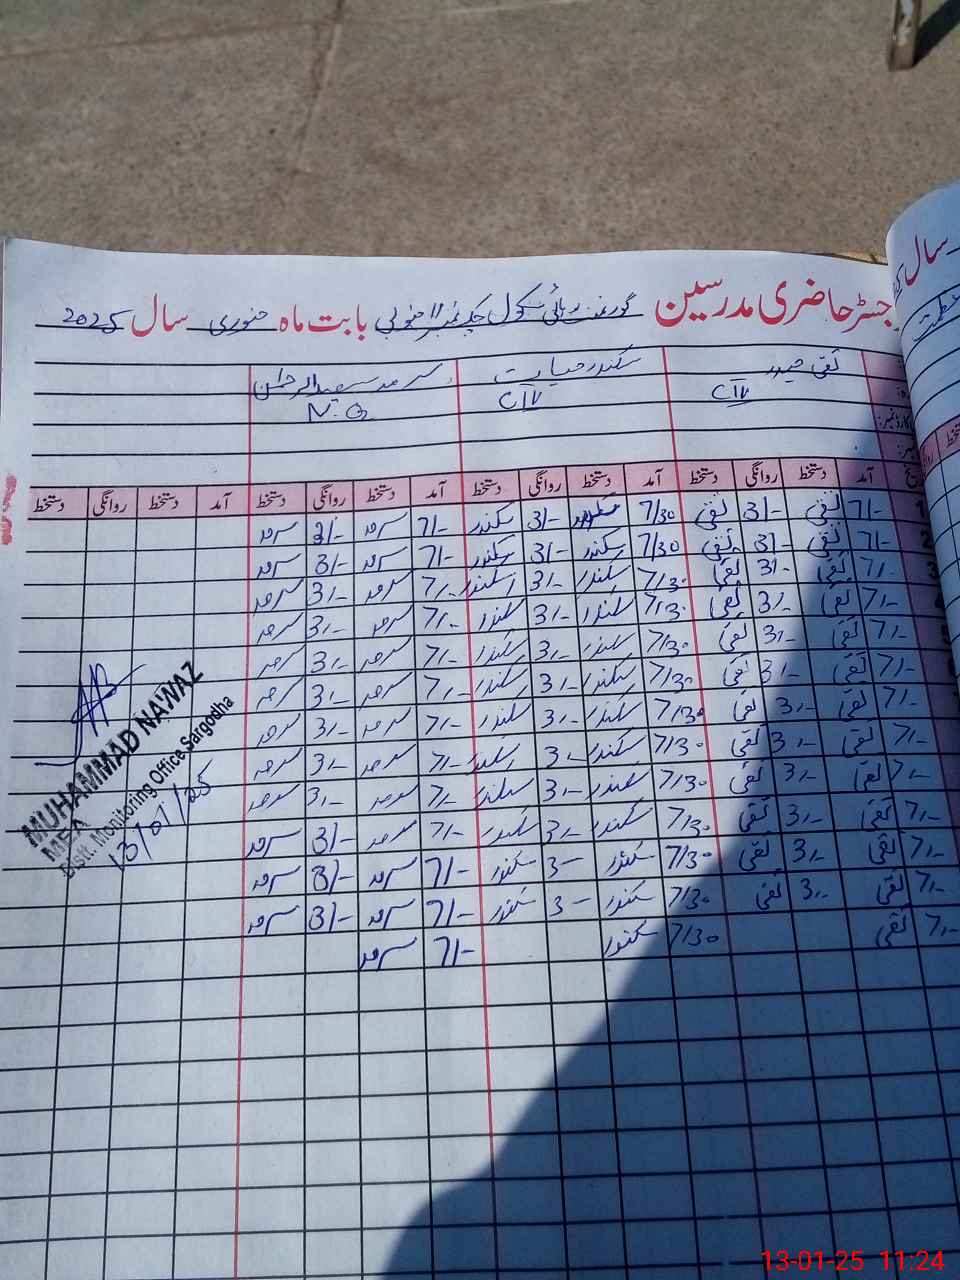 رجسٹر حاضری مدرسین گورنمنٹ ہائی سکول چک نمبر 11 جنوبی بابت ماہ جنوری سال 2025
تقی حیدر سکندر حیات سرمد سعید الرحمٰن
CIV CIV N.Q
آمد دستخط روانگی دستخط آمد دستخط روانگی دستخط آمد دستخط روانگی دستخط آمد دستخط روانگی دستخط
7/- تقی 3/- تقی 7/30 سکندر 3/- سکندر 7/- سرمد 3/- سرمد
7/- تقی 3/- تقی 7/30 سکندر 3/- سکندر 7/- سرمد 3/- سرمد
7/- تقی 3/- تقی 7/30 سکندر 3/- سکندر 7/- سرمد 3/- سرمد
7/- تقی 3/- تقی 7/30 سکندر 3/- سکندر 7/- سرمد 3/- سرمد
7/- تقی 3/- تقی 7/30 سکندر 3/- سکندر 7/- سرمد 3/- سرمد
7/- تقی 3/- تقی 7/30 سکندر 3/- سکندر 7/- سرمد 3/- سرمد
7/- تقی 3/- تقی 7/30 سکندر 3/- سکندر 7/- سرمد 3/- سرمد
7/- تقی 3/- تقی 7/30 سکندر 3/- سکندر 7/- سرمد 3/- سرمد
7/- تقی 3/- تقی 7/30 سکندر 3/- سکندر 7/- سرمد 3/- سرمد
7/- تقی 3/- تقی 7/30 سکندر 3/- سکندر 7/- سرمد 3/- سرمد
7/- تقی 3/- تقی 7/30 سکندر 3- سکندر 7/- سرمد 3/- سرمد
7/- تقی 3/- تقی 7/30 سکندر 3- سکندر 7/- سرمد 3/- سرمد
7/- تقی 7/30 سکندر 7/- سرمد
MUHAMMAD NAWAZ
MEA
Distt. Monitoring Office Sargodha
13/01/25
13-01-25 11:24